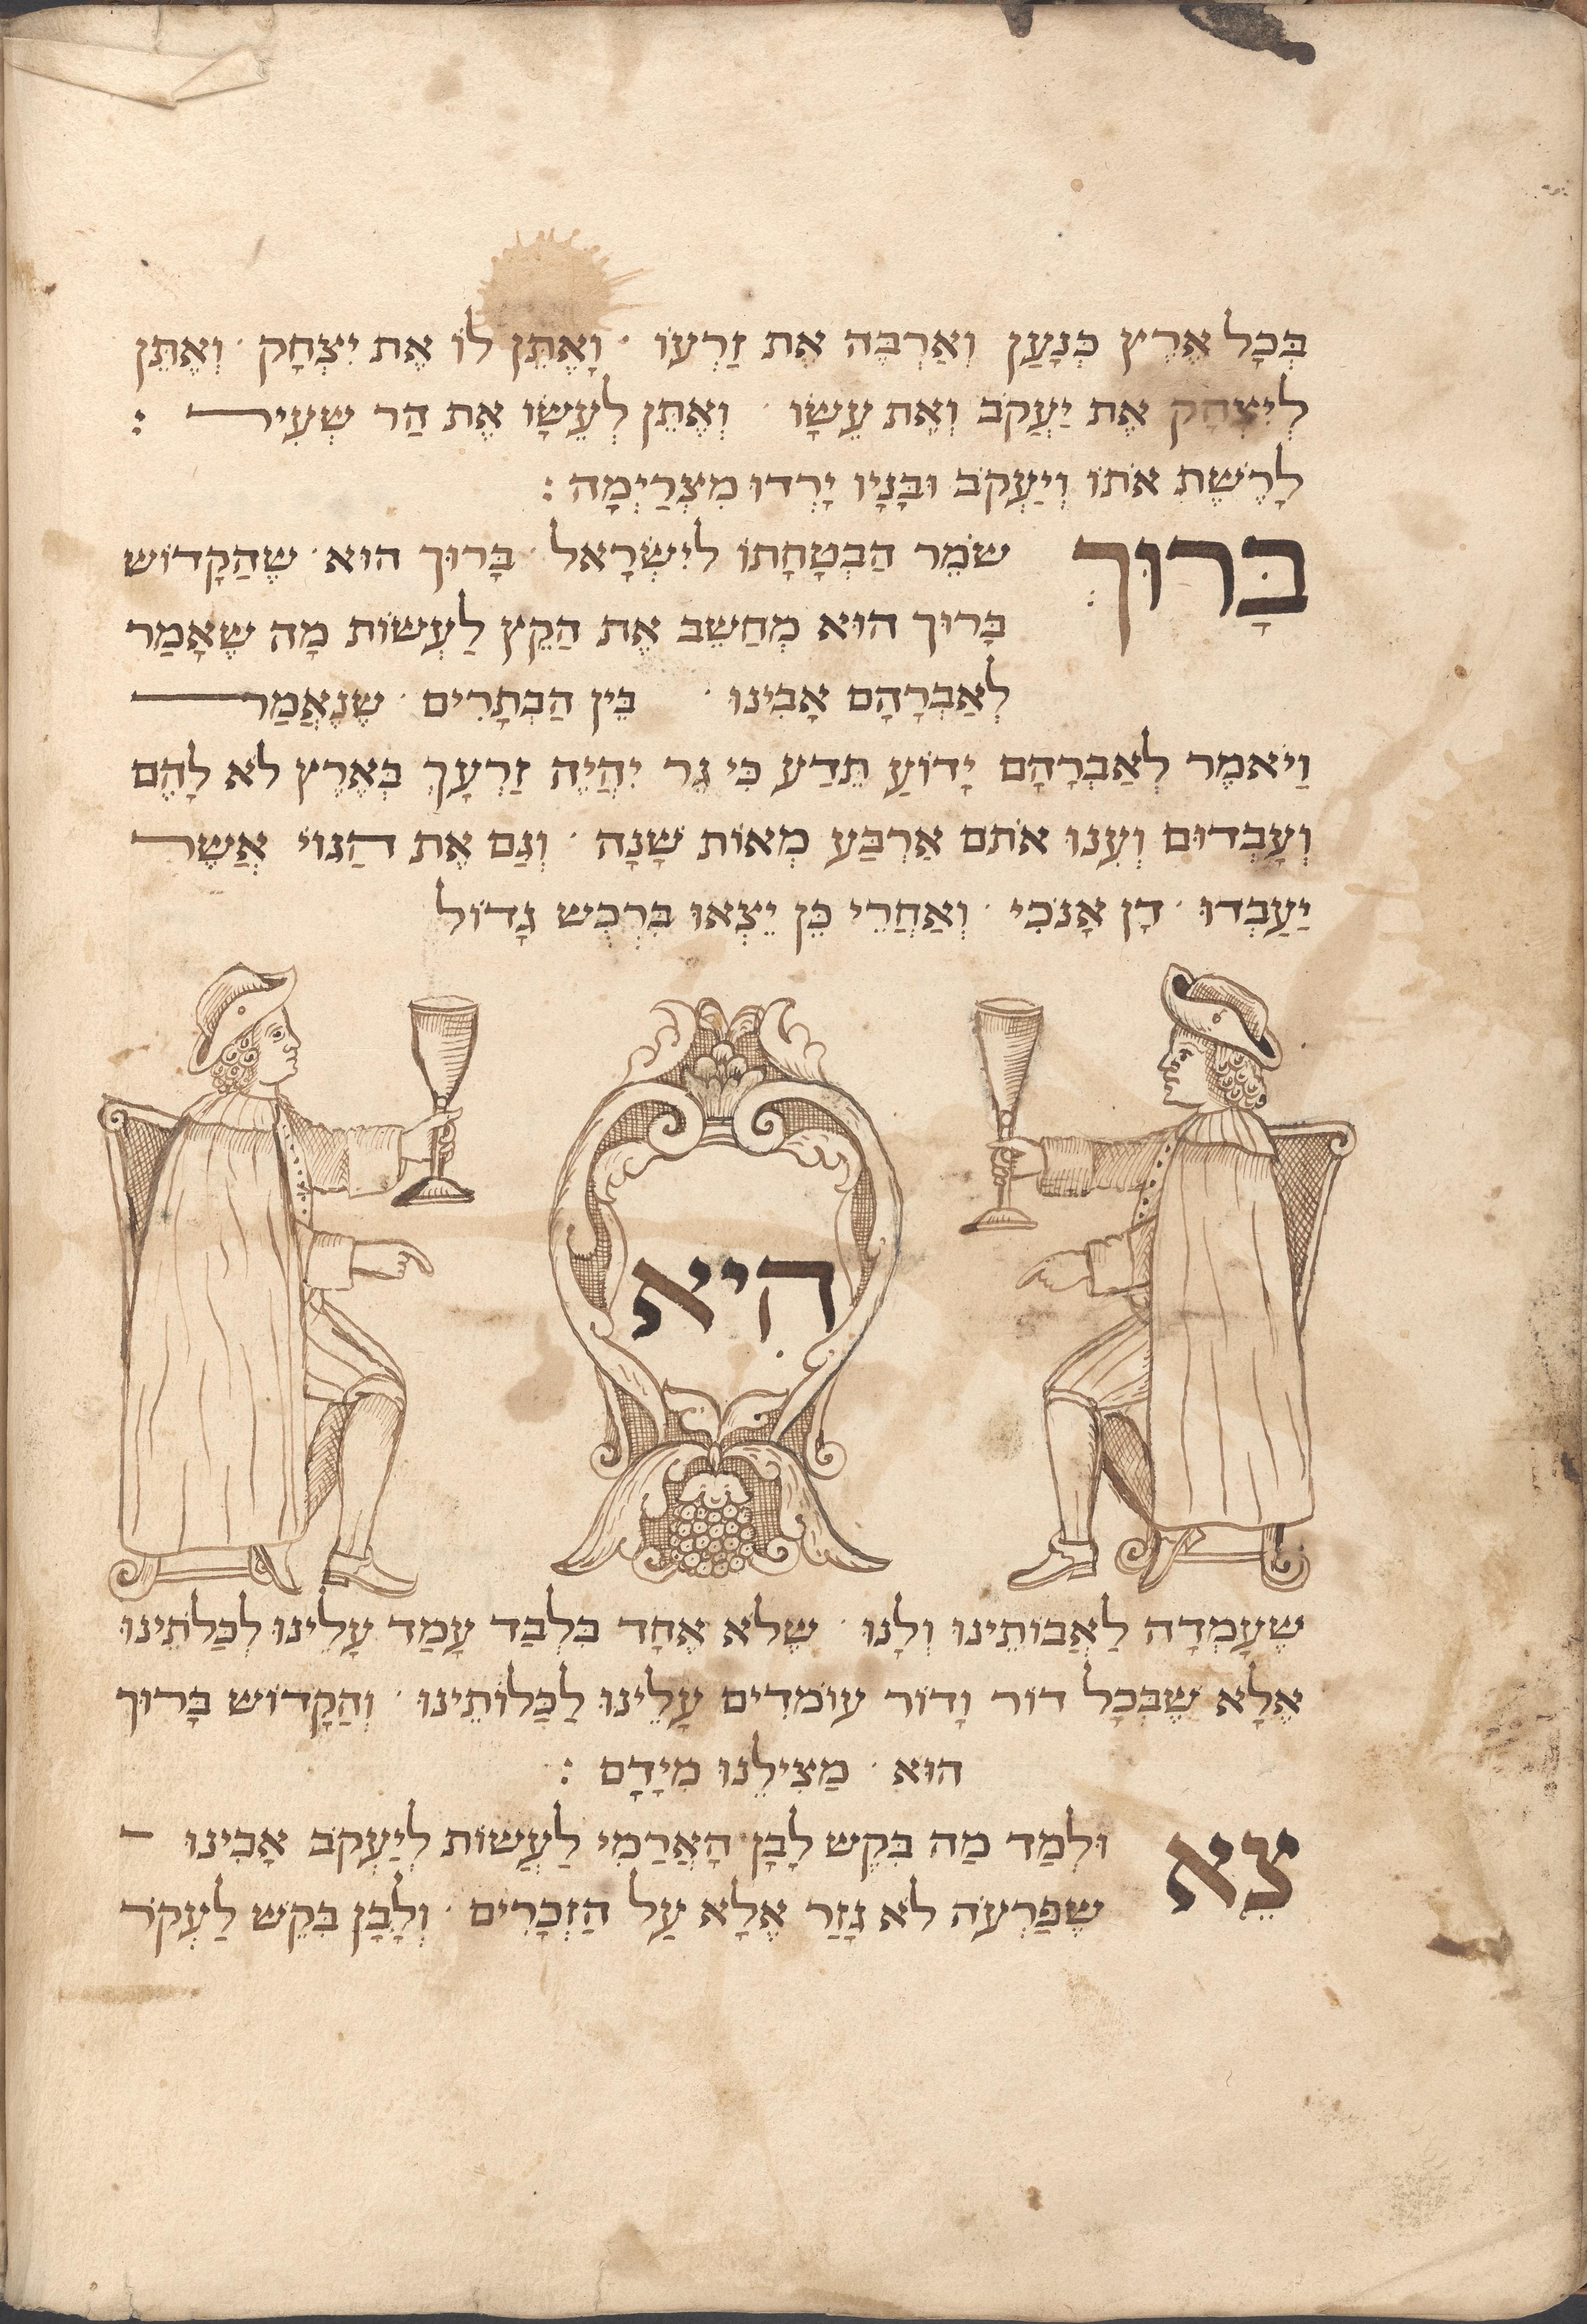 בְּכָל אֶרֶץ כְּנָעַן וְאַרְבֶּה אֶת זַרְעוֹ · וָאֶתֵּן לוֹ אֶת יִצְחָק · וְאֶתֵּן
לְיִצְחָק אֶת יַעֲקֹב וְאֶת עֵשָׂו · וְאֶתֵּן לְעֵשָׂו אֶת הַר שֵׂעִיר :
לָרֶשֶׁת אֹתוֹ וְיַעֲקֹב וּבָנָיו יָרְדוּ מִצְרַיְמָה :
בָּרוּךְ שׁוֹמֵר הַבְטָחָתוֹ לְיִשְׂרָאֵל · בָּרוּךְ הוּא · שֶׁהַקָּדוֹשׁ
בָּרוּךְ הוּא מְחַשֵּׁב אֶת הַקֵּץ לַעֲשׂוֹת מָה שֶׁאָמַר
לְאַבְרָהָם אָבִינוּ · בֵּין הַבְּתָרִים · שֶׁנֶּאֱמַר
וַיֹּאמֶר לְאַבְרָהָם יָדוֹעַ תֵּדַע כִּי גֵר יִהְיֶה זַרְעֲךָ בְּאֶרֶץ לֹא לָהֶם
וְעָבְדוּם וְעִנּוּ אֹתָם אַרְבַּע מֵאוֹת שָׁנָה · וְגַם אֶת הַגּוֹי אֲשֶׁר
יַעֲבְדוּ · דָן אָנֹכִי · וְאַחֲרֵי כֵן יֵצְאוּ בִּרְכֻשׁ גָּדוֹל
הִיא
שֶׁעָמְדָה לַאֲבוֹתֵינוּ וְלָנוּ · שֶׁלֹּא אֶחָד בִּלְבַד עָמַד עָלֵינוּ לְכַלֹּתֵינוּ
אֶלָּא שֶׁבְּכָל דּוֹר וָדוֹר עוֹמְדִים עָלֵינוּ לְכַלּוֹתֵינוּ · וְהַקָּדוֹשׁ בָּרוּךְ
הוּא · מַצִּילֵנוּ מִיָּדָם :
צֵא וּלְמַד מַה בִּקֵּשׁ לָבָן הָאֲרַמִּי לַעֲשׂוֹת לְיַעֲקֹב אָבִינוּ -
שֶׁפַּרְעֹה לֹא גָזַר אֶלָּא עַל הַזְּכָרִים · וְלָבָן בִּקֵּשׁ לַעֲקֹר